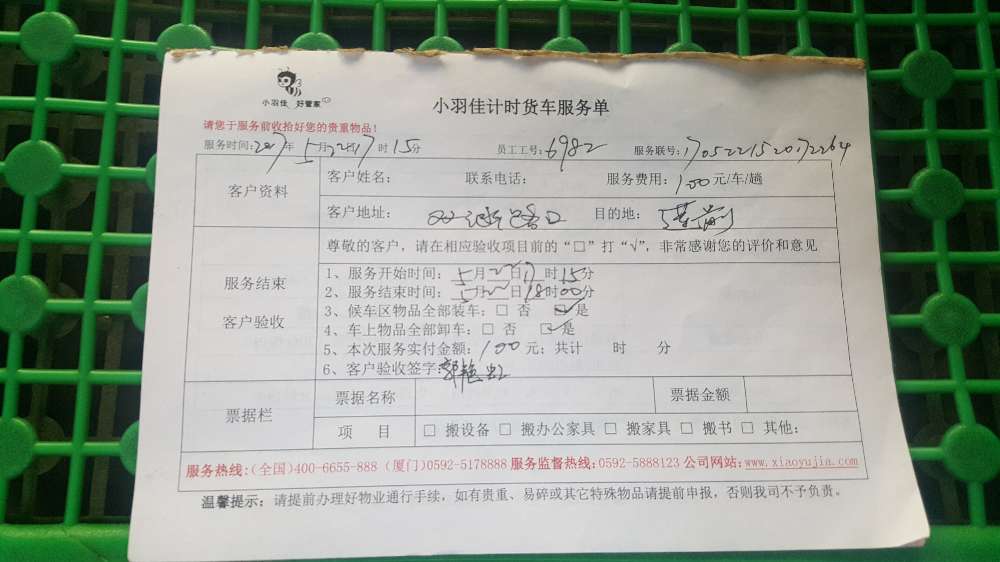 小羽佳 好管家
小羽佳计时货车服务单
请您于服务前收拾好您的贵重物品!
服务时间:2017年5月22日17时15分 员工工号:6982 服务联号:1705221520172264
客户资料
客户姓名: 联系电话: 服务费用:100元/车/趟
客户地址: 路口 目的地: 莲前
尊敬的客户,请在相应验收项目前的“□”打“√”,非常感谢您的评价和意见
服务结束
客户验收
1、服务开始时间:5月22日17时15分
2、服务结束时间:5月22日18时00分
3、候车区物品全部装车:□ 否 ☑是
4、车上物品全部卸车:□ 否 ☑是
5、本次服务实付金额:100元;共计 时 分
6、客户验收签字:郭艳虹
票据栏
票据名称 票据金额
项 目 □ 搬设备 □ 搬办公家具 □ 搬家具 □ 搬书 □ 其他:
服务热线:(全国)400-6655-888 (厦门)0592-5178888 服务监督热线:0592-5888123 公司网站:www.xiaoyujia.com
温馨提示:请提前办理好物业通行手续,如有贵重、易碎或其它特殊物品请提前申报,否则我司不予负责。